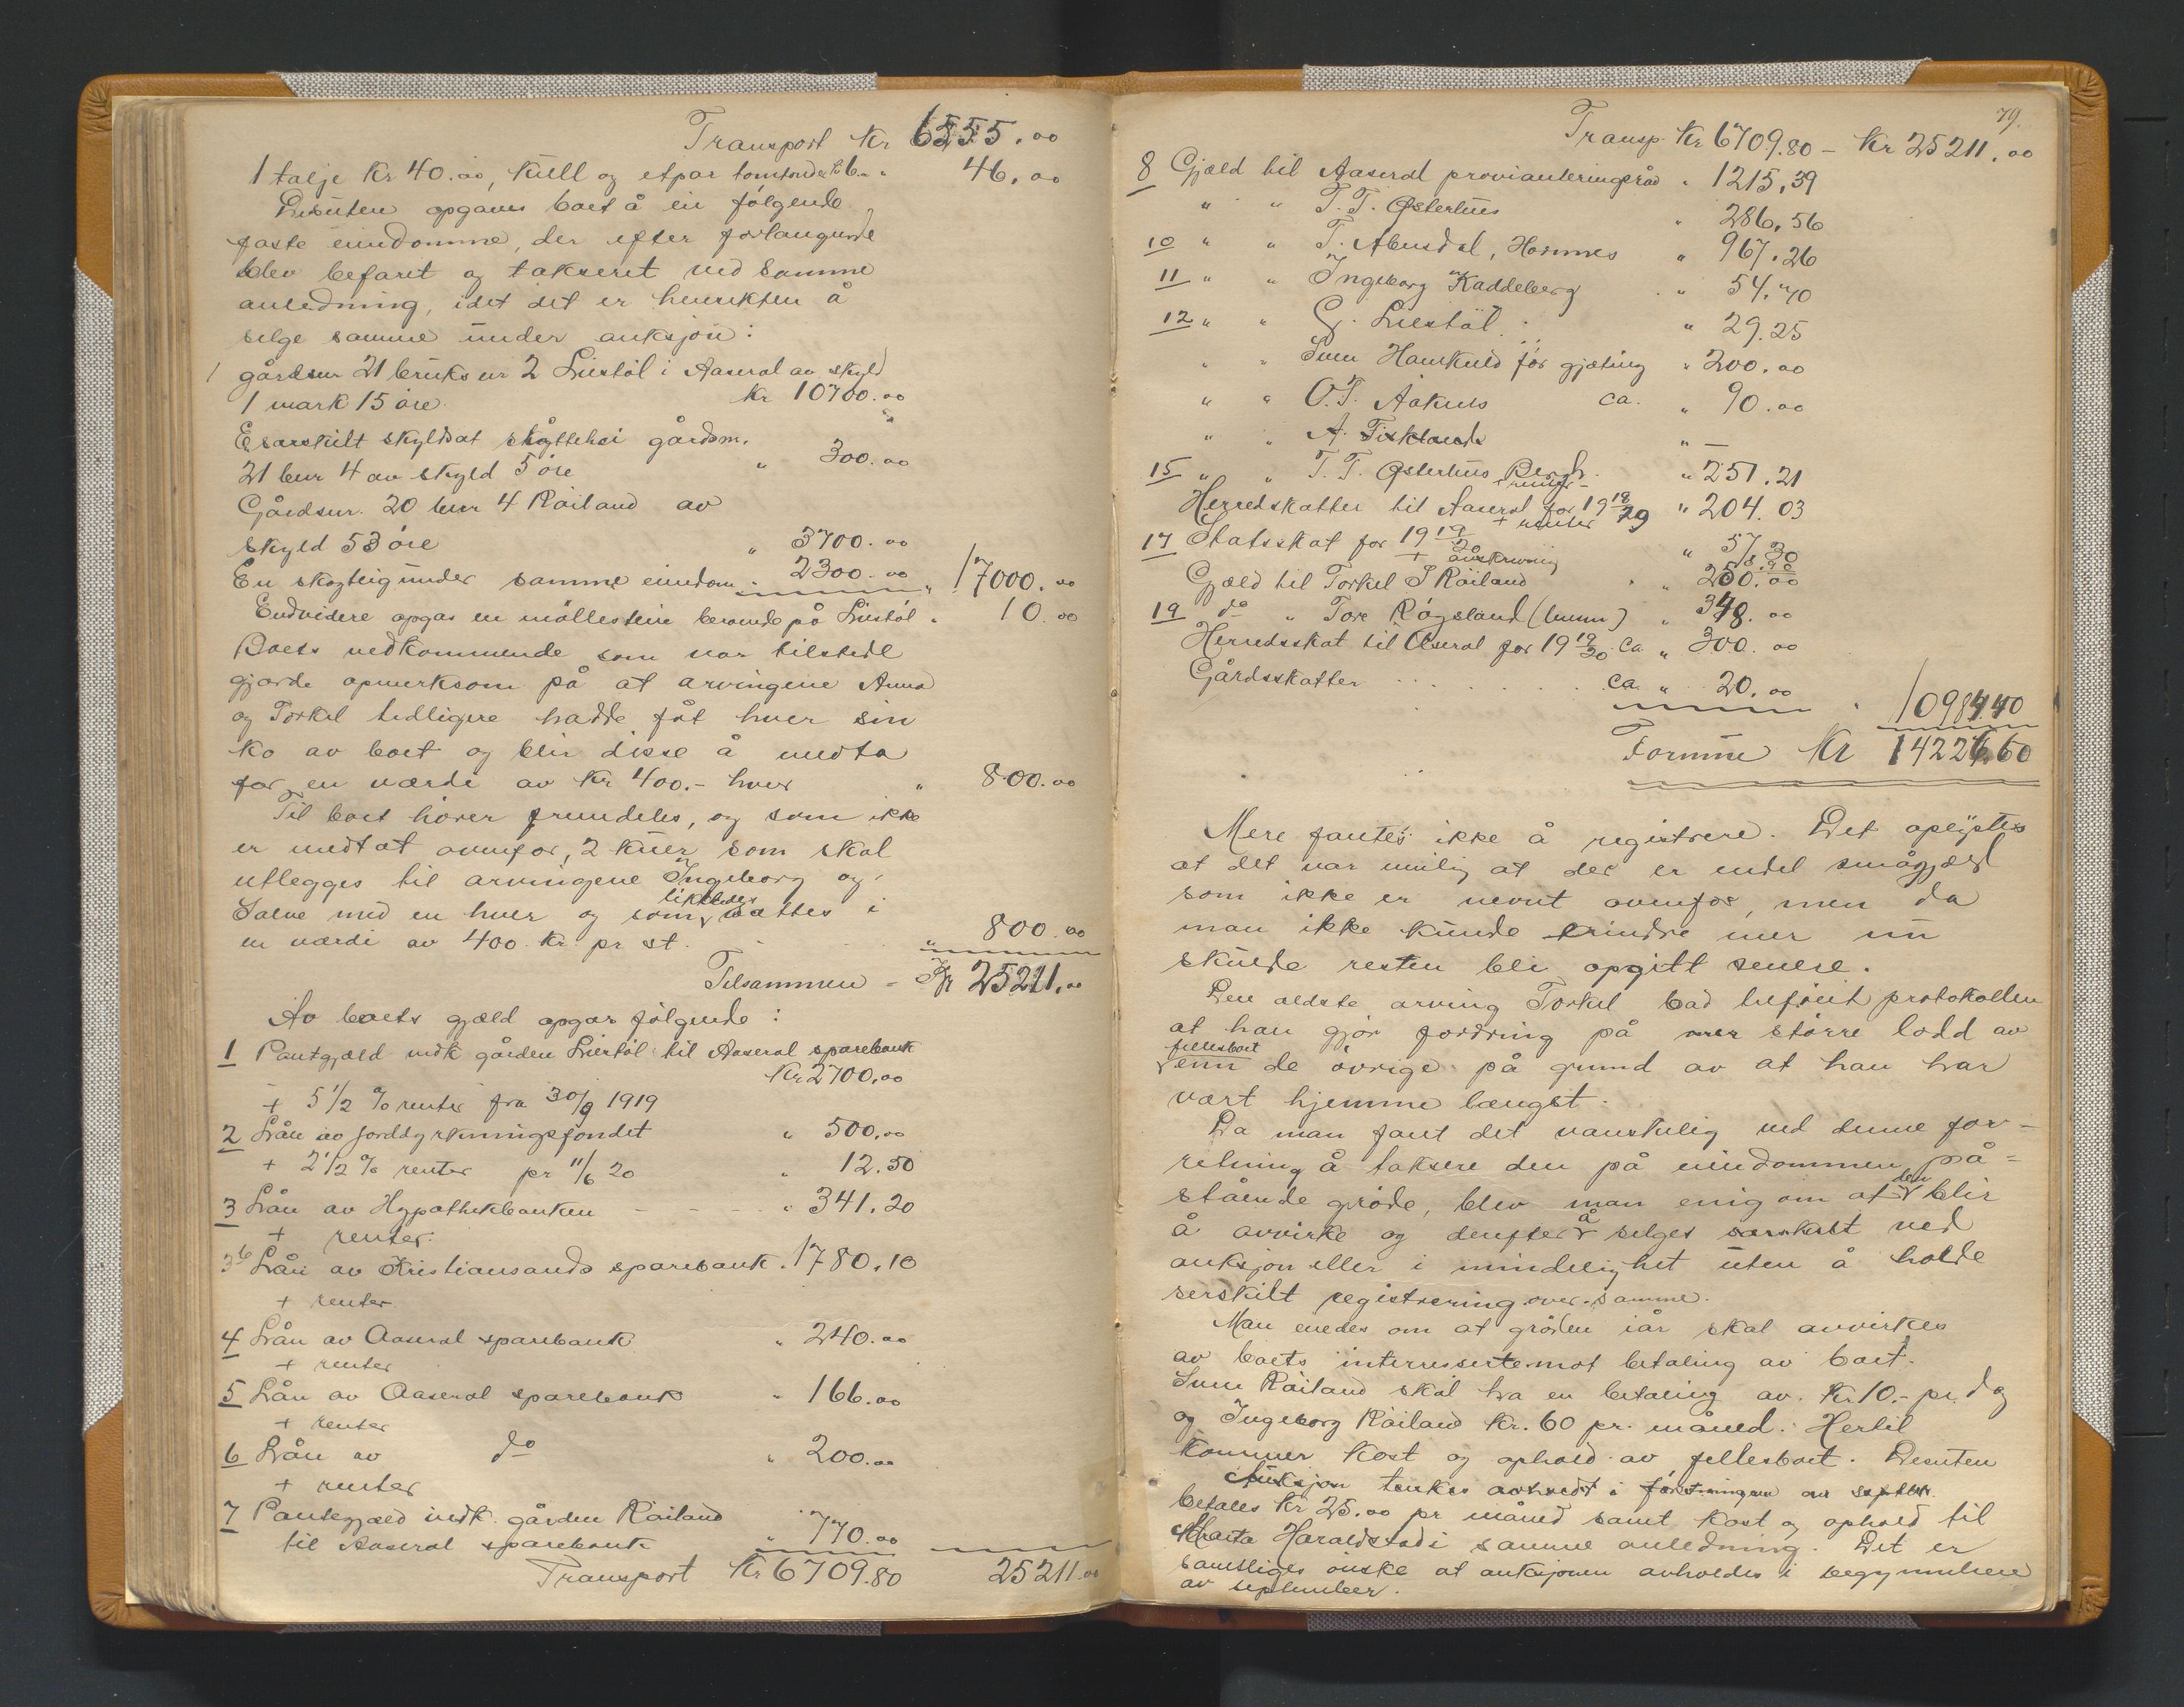 Transport Kr 6555.00
1 talje Kr 40.00, kull og etpar tomtønder 6.- " 46.00
Desuten opgaves boet å eie følgende
faste eiendomme, der efter forlangende
blev befaret og taksert ved samme
anledning, idet det er hensikten å
selge samme under auksjon:
1 gårdsnr 21 bruksnr 2 Liestøl i Aaseral av skyld
1 mark 15 øre. Kr 10700.00
E særskilt skyldsat slåttehei gårdsnr.
21 bnr 4 av skyld 5 øre " 300.00
Gårdsnr. 20 bnr 4 Røiland av
skyld 53 øre " 3700.00
En skogteig under samme eiendom " 2300.00 " 17000.00
Endvidere opgas en møllestein beroende på Liestøl " 10.00
Boets vedkommende som var tilstede
gjorde opmerksom på at arvingene Anna
og Torkel tidligere hadde fåt hver sin
ko av boet og blir disse å medta
for en værdi av Kr 400.- hver " 800.00
Til boet hører fremdeles, og som ikke
er medtat ovenfor, 2 kuer som skal
utlegges til arvingene Ingeborg og
likeledes
Salve med en hver og som sættes i
en værdi av 400 Kr. pr st. " 800.00
Tilsammen - Kr 25211.00
Av boets gjæld opgas følgende:
1 Pantgjæld vedk gården Liestøl til Aaseral sparebank
Kr 2700.00
+ 5 1/2 % renter fra 30/9 1919
2 Lån av jorddyrkningsfondet " 500.00
+ 2 1/2 % renter pr 11/6 20 " 12.50
3 Lån av Hypothekbanken - - - " 341.20
+ renter.
3b Lån av Kristiansands sparebank " 1780.10
+ renter
4 Lån av Aaseral sparebank " 240.00
+ renter
5 Lån av Aaseral sparebank " 166.00
+ renter
6 Lån av do " 200.00
+ renter
7 Pantegjæld vedk. gården Røiland
til Aaseral sparebank " 770.00
Transport Kr 6709.80 25211.00
79.
Transp. Kr 6709.80 - Kr 25211.00
8 Gjæld til Aaseral provianteringsråd " 1215.39
" " T. T. Østerhus " 286.56
10 " " T. Abusdal, Hornnes " 967.26
11 " " Ingeborg Kaddeberg " 54.40
12 " " G. Liestøl " 29.25
" " Sven Hamkuld for gjæting " 200.00
" " O. T. Åknes ca. " 90.00
" " A. Fiskland " —
15 " " T. T. Østerhus Bergh. " 251.21
+ renter -
Herredskatter til Aaseral for 19 18/19 " 204.03
+ renter
17 Statsskat for 19 19/20 " 57.30
+
Gjæld til Torkel S Røiland " 250.00
19 do " Tore Røysland (bnnn) " 348.00
Herredsskat til Åseral for 19 19/20 ca " 300.00
Gårdsskatter ca " 20.00 " 10984.40
Formue Kr 14226.60
Mere fantes ikke å registrere. Det oplystes
at det var mulig at der er endel smågjæld
som ikke er nevnt ovenfor, men da
man ikke kunde erindre mer nu
skulde resten bli opgitt senere.
Den ældste arving Torkel bad tilføiet protokollen
at han gjør fordring på større lodd av
fellesboet
enn de øvrige på grund av at han har
vært hjemme længst.
Da man fant det vanskelig ved denne for-
retning å taksere den på eiendommen på=
stående grøde, blev man enig om at den blir
å avvirke og derefter å selges særskilt ved
auksjon eller i mindelighet uten å holde
serskilt registrering over samme.
Man enedes om at grøden iår skal avvirkes
av boets interresserte mot betaling av boet.
Sven Røiland skal ha en betaling av Kr 10.- pr. dg
og Ingeborg Røiland Kr. 60 pr. måned. Hertil
kommer kost og ophold av fellesboet. Desuten
Auksjon tenkes avholdt i førstningen av septbr.
betales Kr 25.00 pr måned samt kost og ophold til
Marta Haraldstad i samme anledning. Det er
samtliges ønske at auksjonen avholdes i begynnelsen
av september.